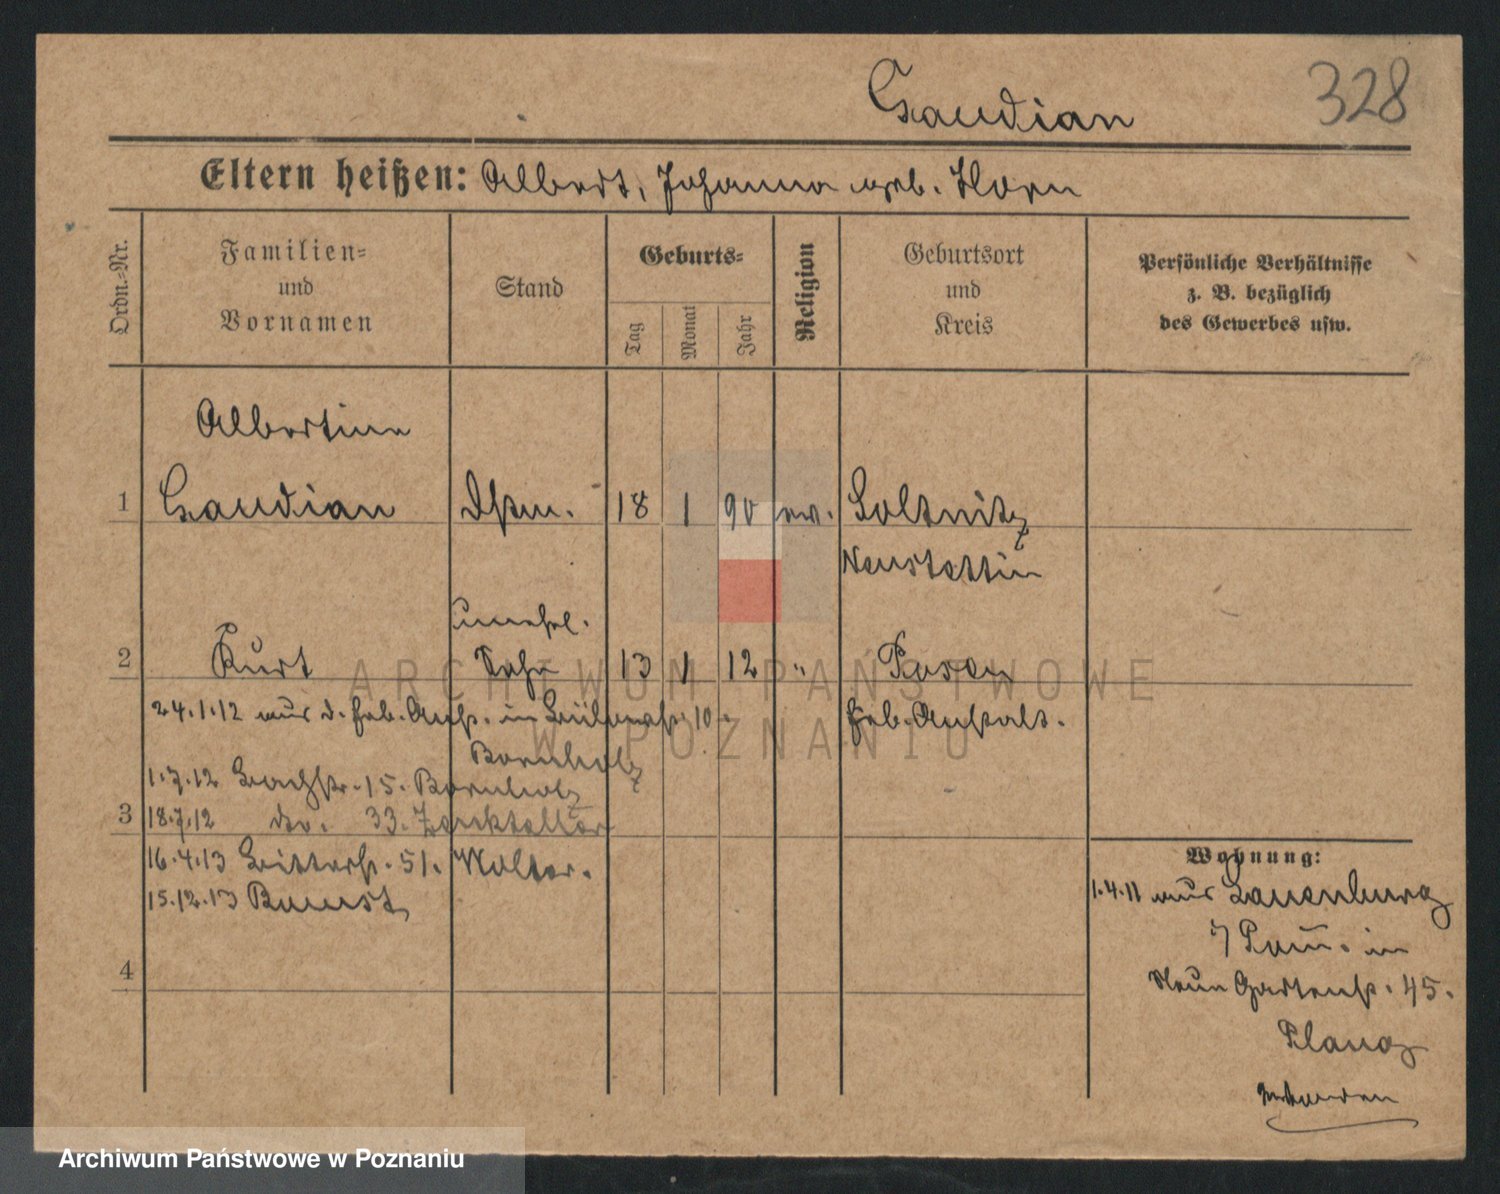 Gaudian
328
Eltern heißen: Albert, Johanna geb. Horn
Ordn.-Nr.
Familien-
und
Vornamen
Stand
Geburts-
Tag
Monat
Jahr
Religion
Geburtsort
und
Kreis
Persönliche Verhältnisse
z. B. bezüglich
des Gewerbes usw.
Albertine
1 Gaudian 18 1 90 ev. Soltnitz
Neustettin
unehel.
2 Kurt Sohn 13 1 12 " Posen
24.1.12 aus d. Geb. Anst. in 10. Geb. Anstalt.
Bornholz
1.7.12 15. Bornholz
3 18.7.12 33.
16.4.13 Ritterstr. 51. Walter.
15.12.13
4
Wohnung:
1.4.11 aus Lauenburg
i/ Pom. in
Neue Gartenstr. 45.
ARCHIWUM PAŃSTWOWE
W POZNANIU
Archiwum Państwowe w Poznaniu